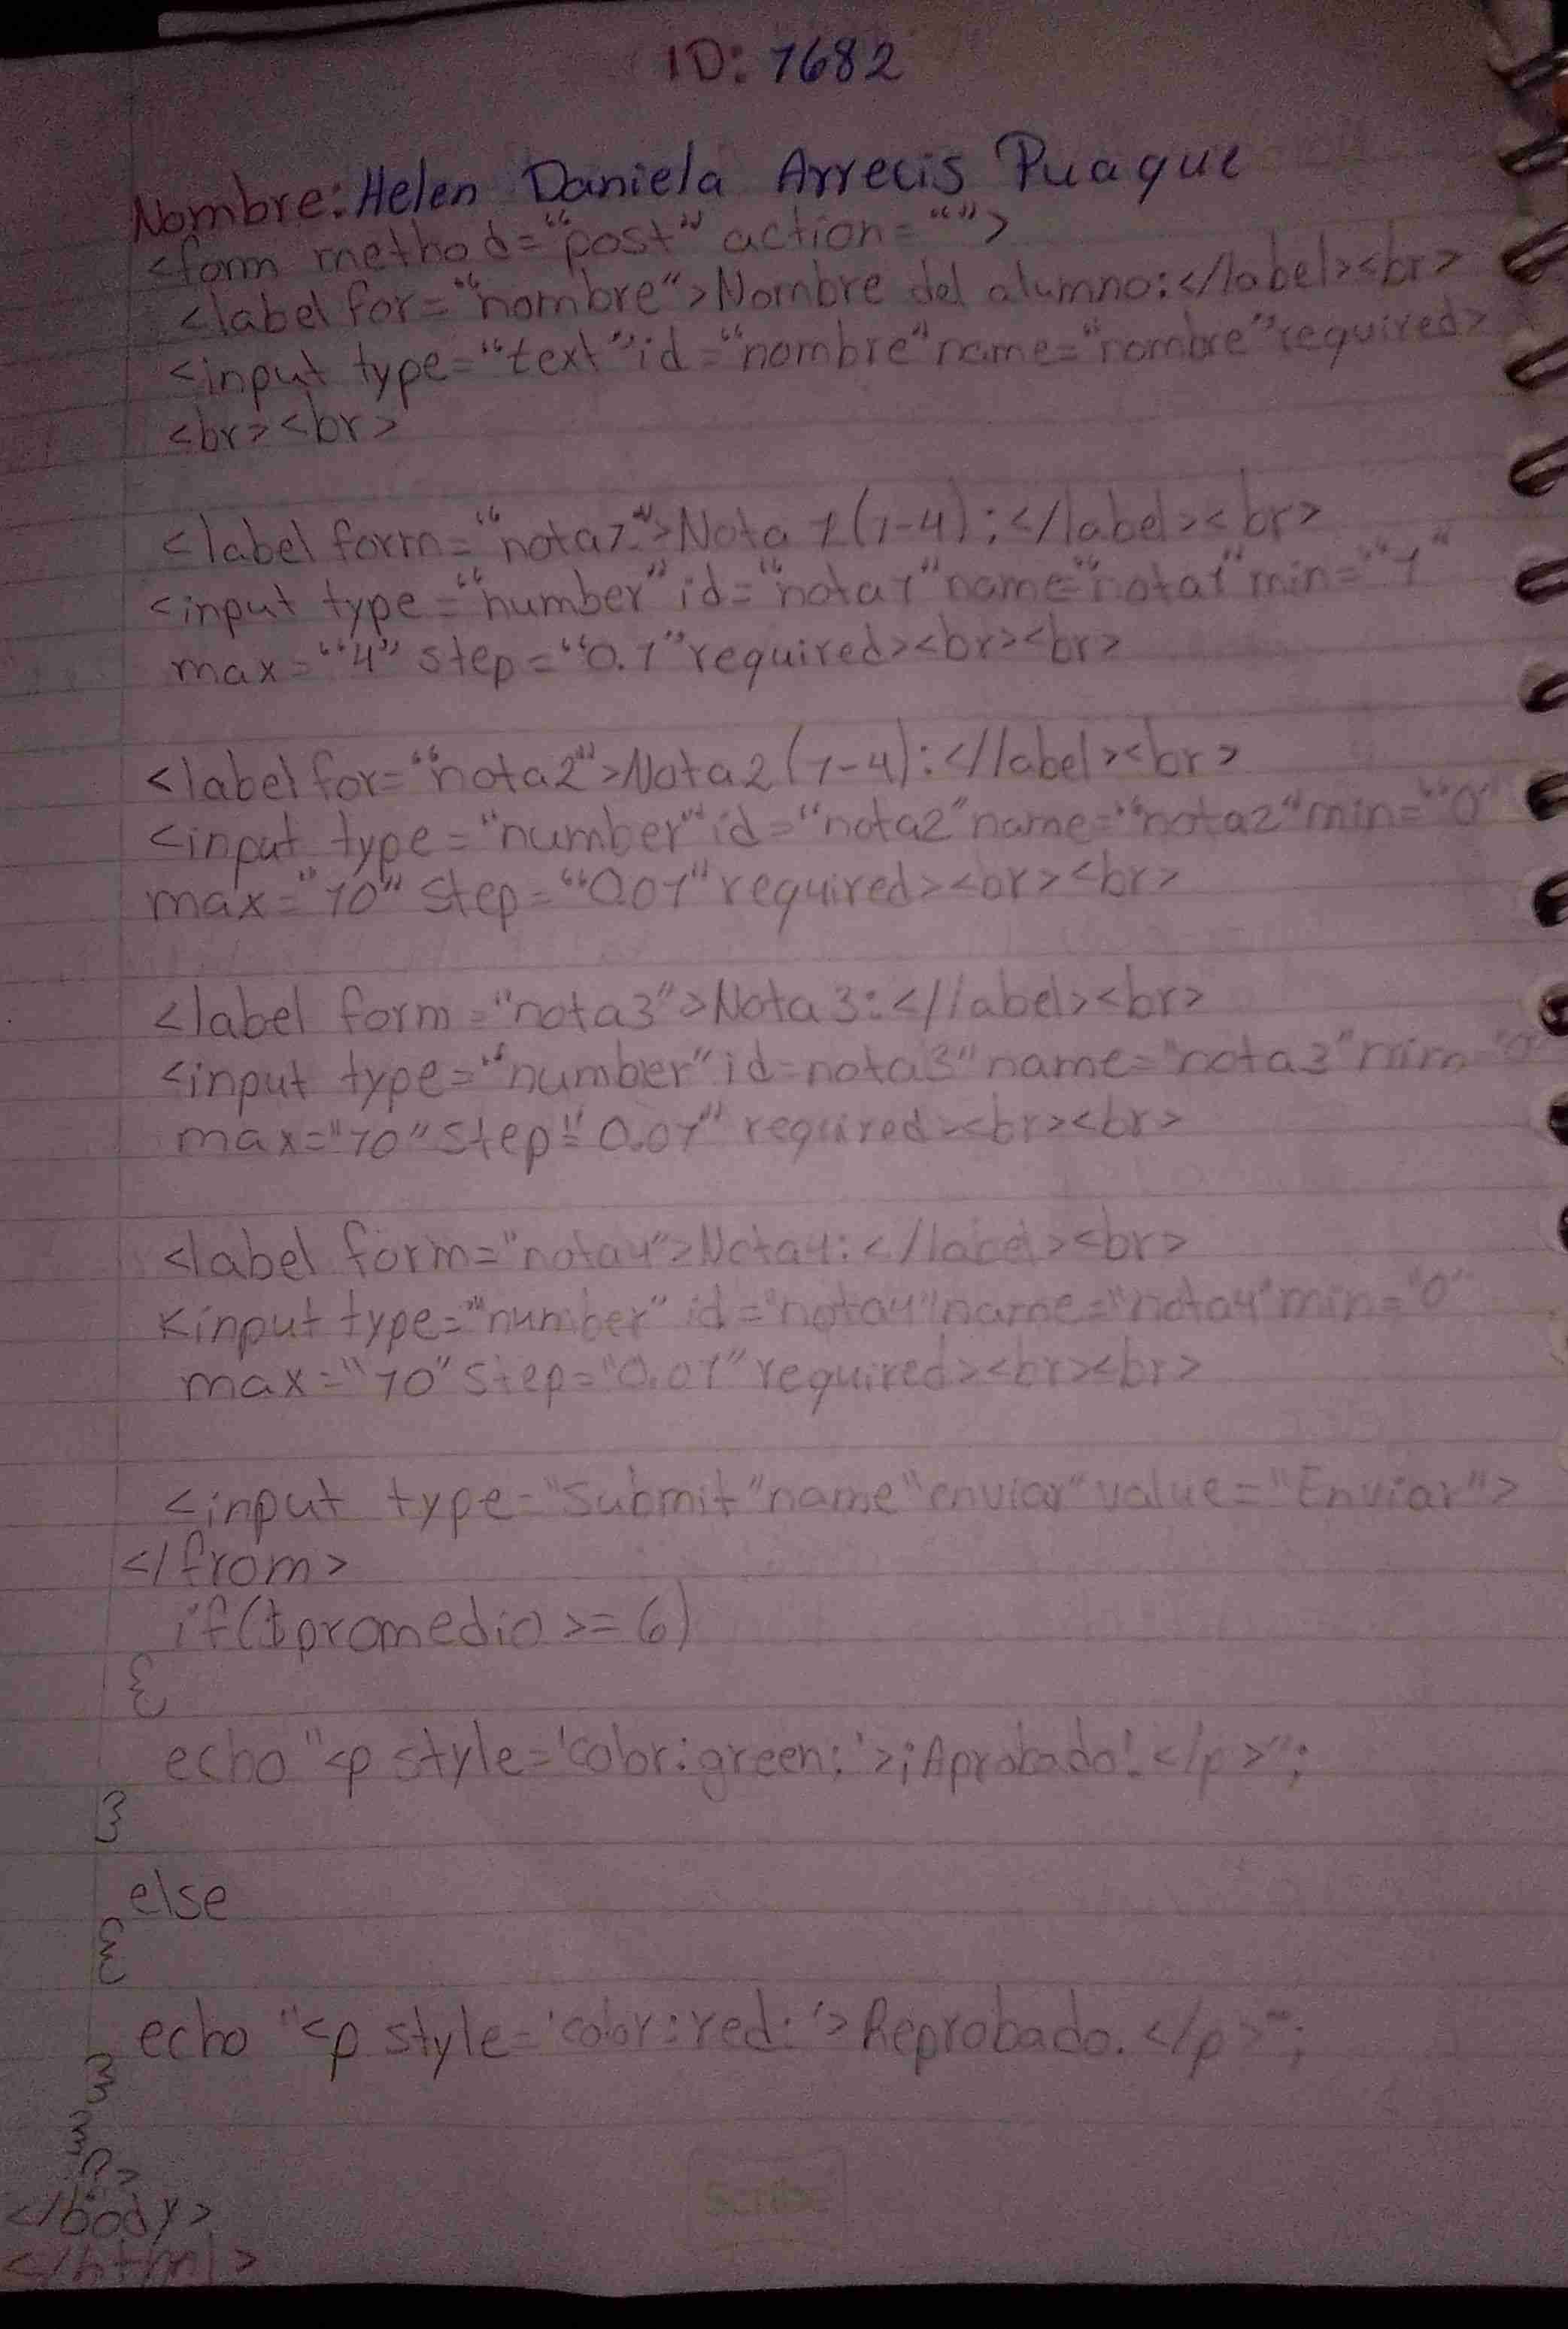 ID: 7682
Nombre: Helen Daniela Arrecis Puaque
<form method="post" action="">
<label for="nombre">Nombre del alumno:</label><br>
<input type="text" id="nombre" name="nombre" required>
<br><br>
<label form="nota1">Nota 1 (1-4):</label><br>
<input type="number" id="nota1" name="nota1" min="1"
max="4" step="0.1" required><br><br>
<label for="nota2">Nota2 (1-4):</label><br>
<input type="number" id="nota2" name="nota2" min="0"
max="10" step="0.01" required><br><br>
<label form="nota3">Nota 3:</label><br>
<input type="number" id=nota3" name="nota3" min="0"
max="10" step"=0.01" required><br><br>
<label form="nota4">Nota4:</label><br>
<input type="number" id="nota4" name="nota4" min="0"
max="10" step="0.01" required><br><br>
<input type="submit" name"enviar" value="Enviar">
</from>
if($promedio >= 6)
{
echo "<p style='color:green;'>¡Aprobado!</p>";
}
else
{
echo "<p style='color:red:'>Reprobado.</p>";
}
}
?>
</body>
</html>
Scribe